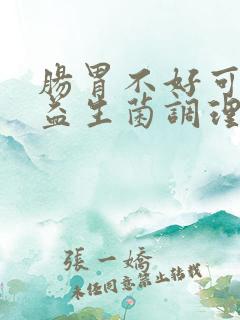 腸胃不好可
益生菌調理
張一嬌
未經同意禁止轉載